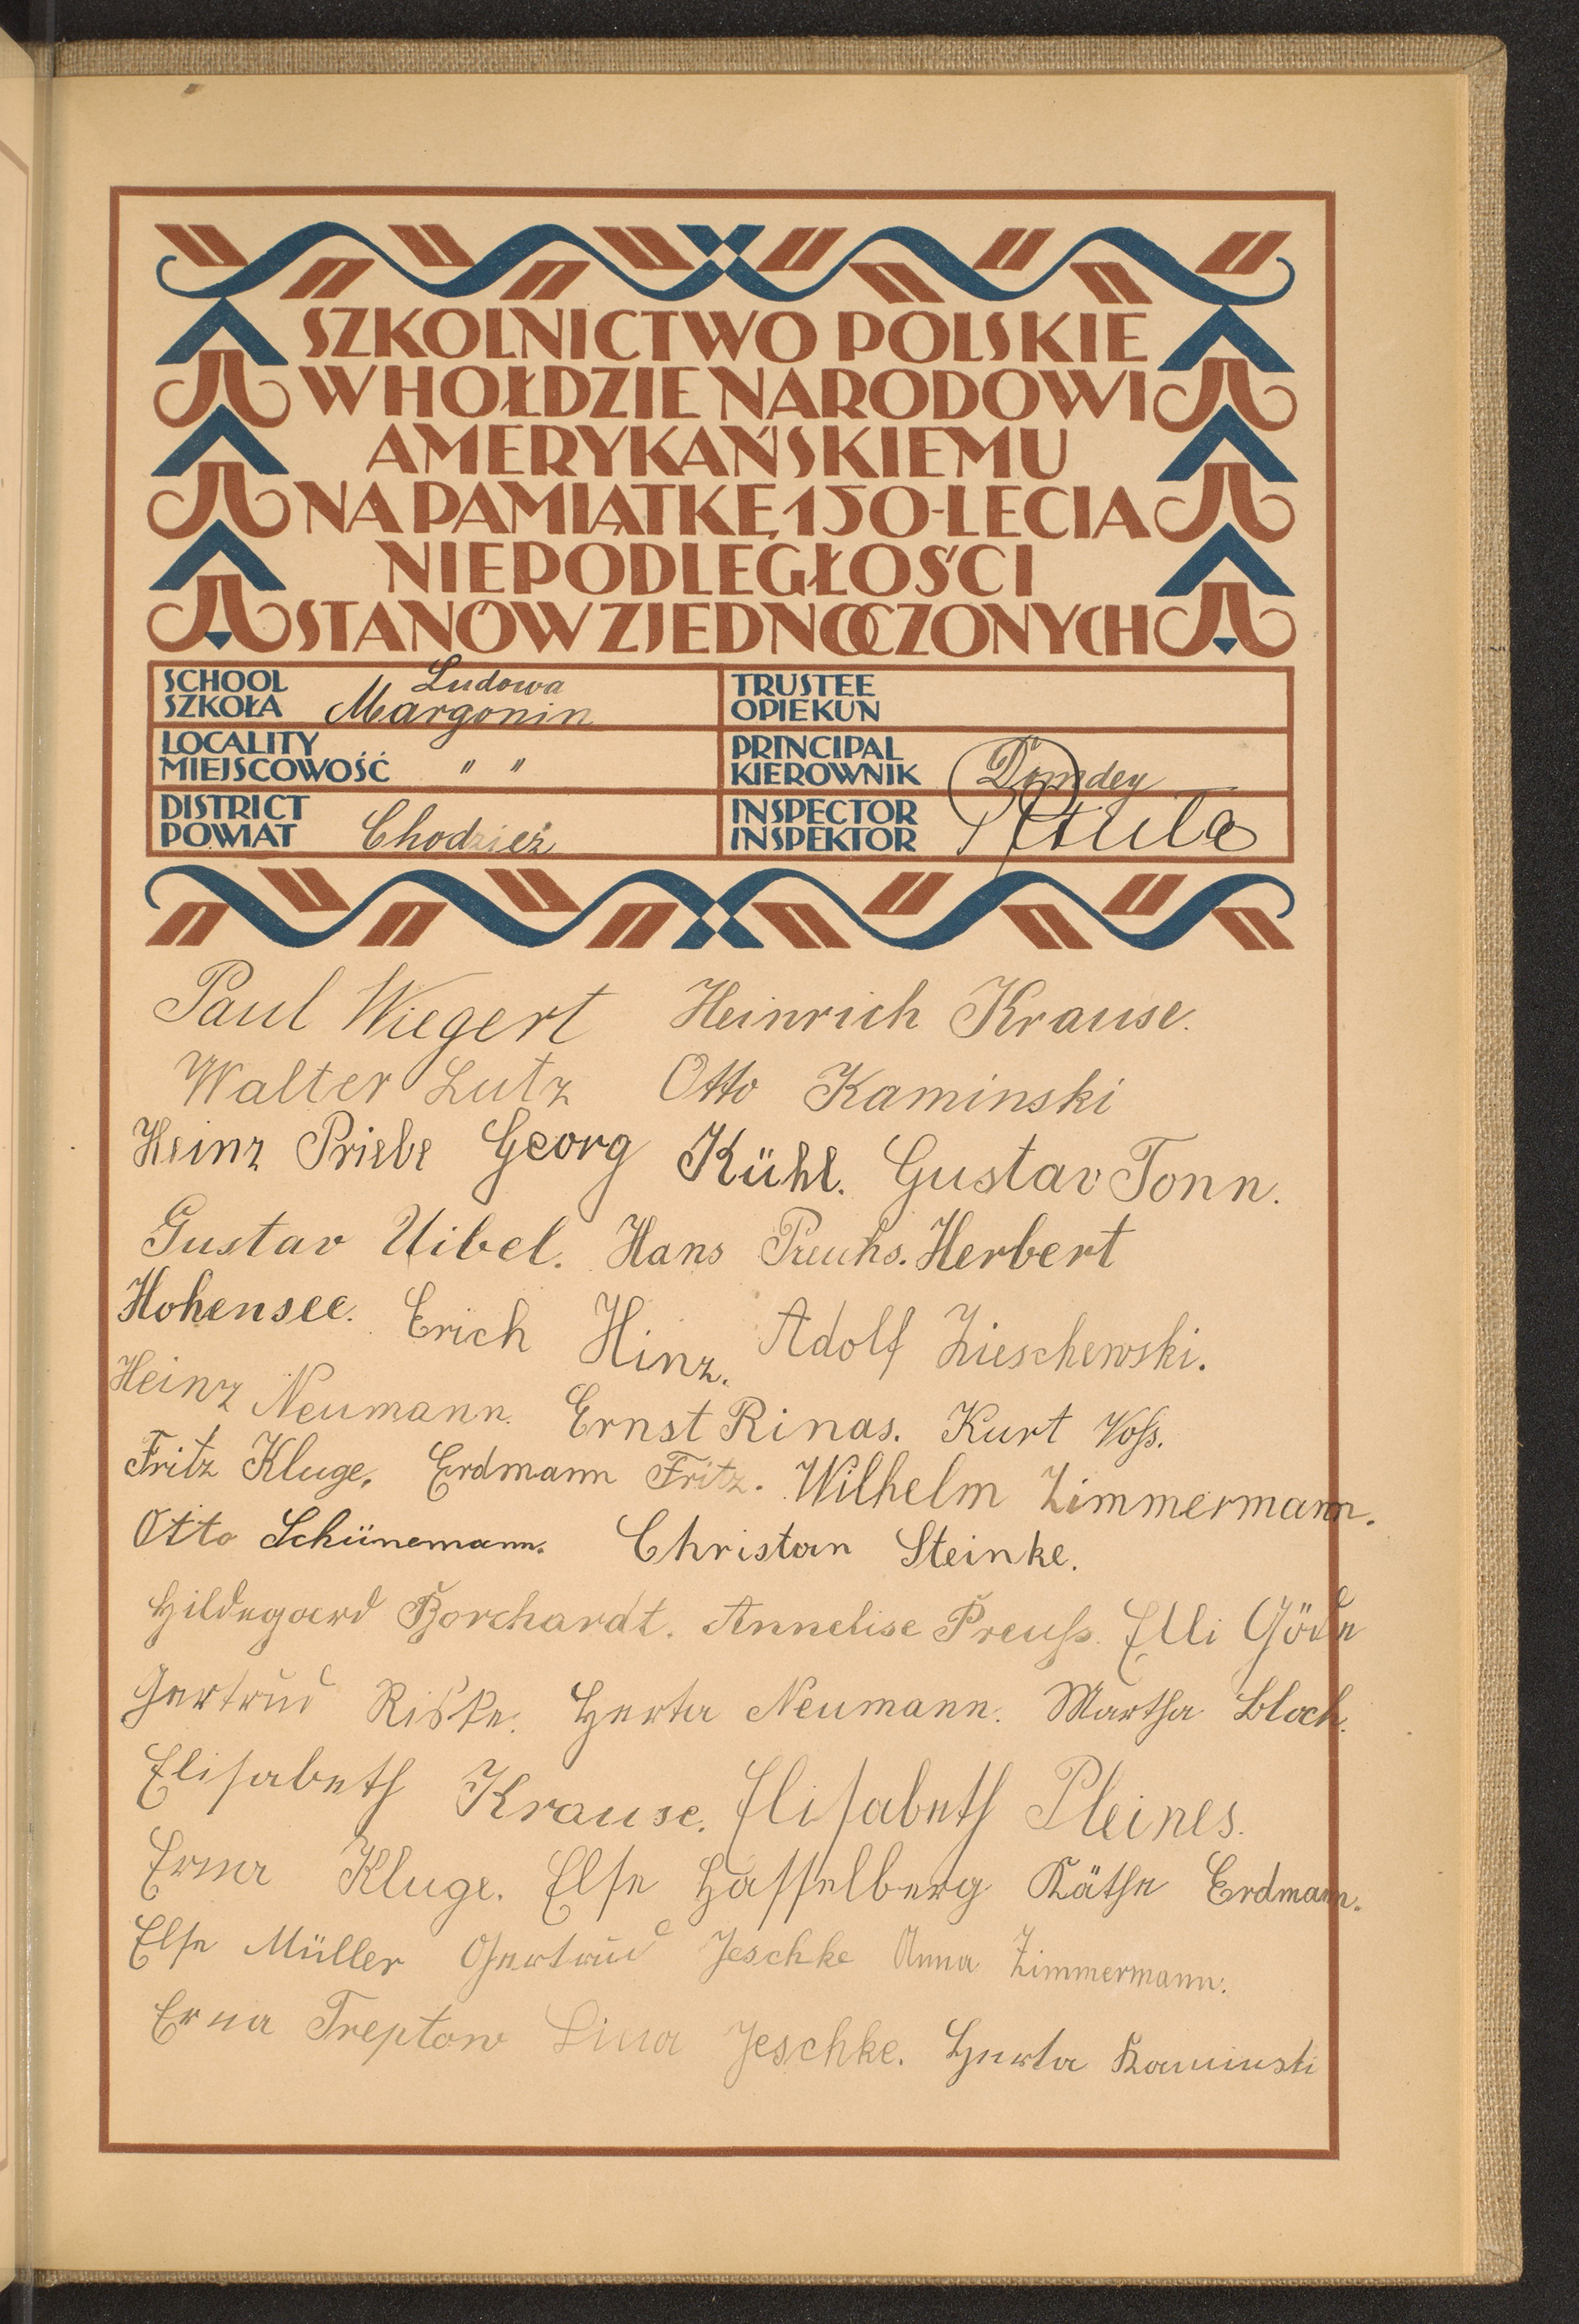 SZKOLNICTWO POLSKIE
W HOŁDZIE NARODOWI
AMERYKAŃSKIEMU
NA PAMIĄTKĘ 150-LECIA
NIEPODLEGŁOŚCI
STANÓW ZJEDNOCZONYCH
SCHOOL
SZKOŁA
Ludowa
Margonin
TRUSTEE
OPIEKUN
LOCALITY
MIEJSCOWOŚĆ
" "
PRINCIPAL
KIEROWNIK
Domdey
DISTRICT
POWIAT
Chodzież
INSPECTOR
INSPEKTOR
Paul Wiegert Heinrich Krause.
Walter Lutz Otto Kaminski
Heinz Priebe Georg Kühl. Gustav Tonn.
Gustav Uibel. Hans Preuhs. Herbert
Hohensee. Erich Hinz. Adolf Zieschewski.
Heinz Neumann. Ernst Rinas. Kurt Voß.
Fritz Kluge. Erdmann Fritz. Wilhelm Zimmermann.
Otto Schünemann. Christan Steinke.
Hildegard Borchardt. Annelise Preuß. Elli Göde
Gertrud Riske. Herta Neumann. Martha Bloch.
Elisabeth Krause. Elisabeth Pleines.
Erna Kluge. Else Hasselberg Käthe Erdmann.
Else Müller Gertrud Jeschke Anna Zimmermann.
Erna Treptow Lina Jeschke. Herta Kaminski